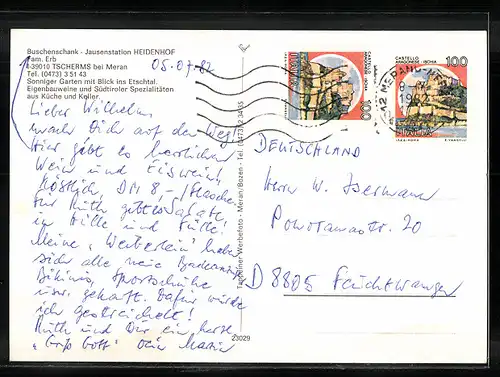 Buschenschank - Jausenstation HEIDENHOF
Fam. Erb
I-39010 TSCHERMS bei Meran
Tel. (0473) 3 51 43
Sonniger Garten mit Blick ins Etschtal.
Eigenbauweine und Südtiroler Spezialitäten
aus Küche und Keller.
05.07.82
Lieber Wilhelm
mach Dich auf den Weg!
Hier gibt es herrlichen
Wein und Eiswein,
köstlich, DM 8,-/Flasche
für Ruth gibt es Salate
in Hülle und Fülle!
Meine "Weiberlein" haben
sich alle neue
Bikinis, Sportschuhe
usw. gekauft. Dafür
ich gestreichelt!
Ruth und Dir ein herzl.
"Grüß Gott" Dein Martin
Tappeiner Werbefoto - Meran/Bozen - Tel.
23029
CASTELLO
ARAGONESE - ISCHIA
100
ITALIA
CASTELLO
ARAGONESE - ISCHIA
100
ITALIA
MERANO
DEUTSCHLAND
Herrn W.
20
D 8805 Feuchtwangen